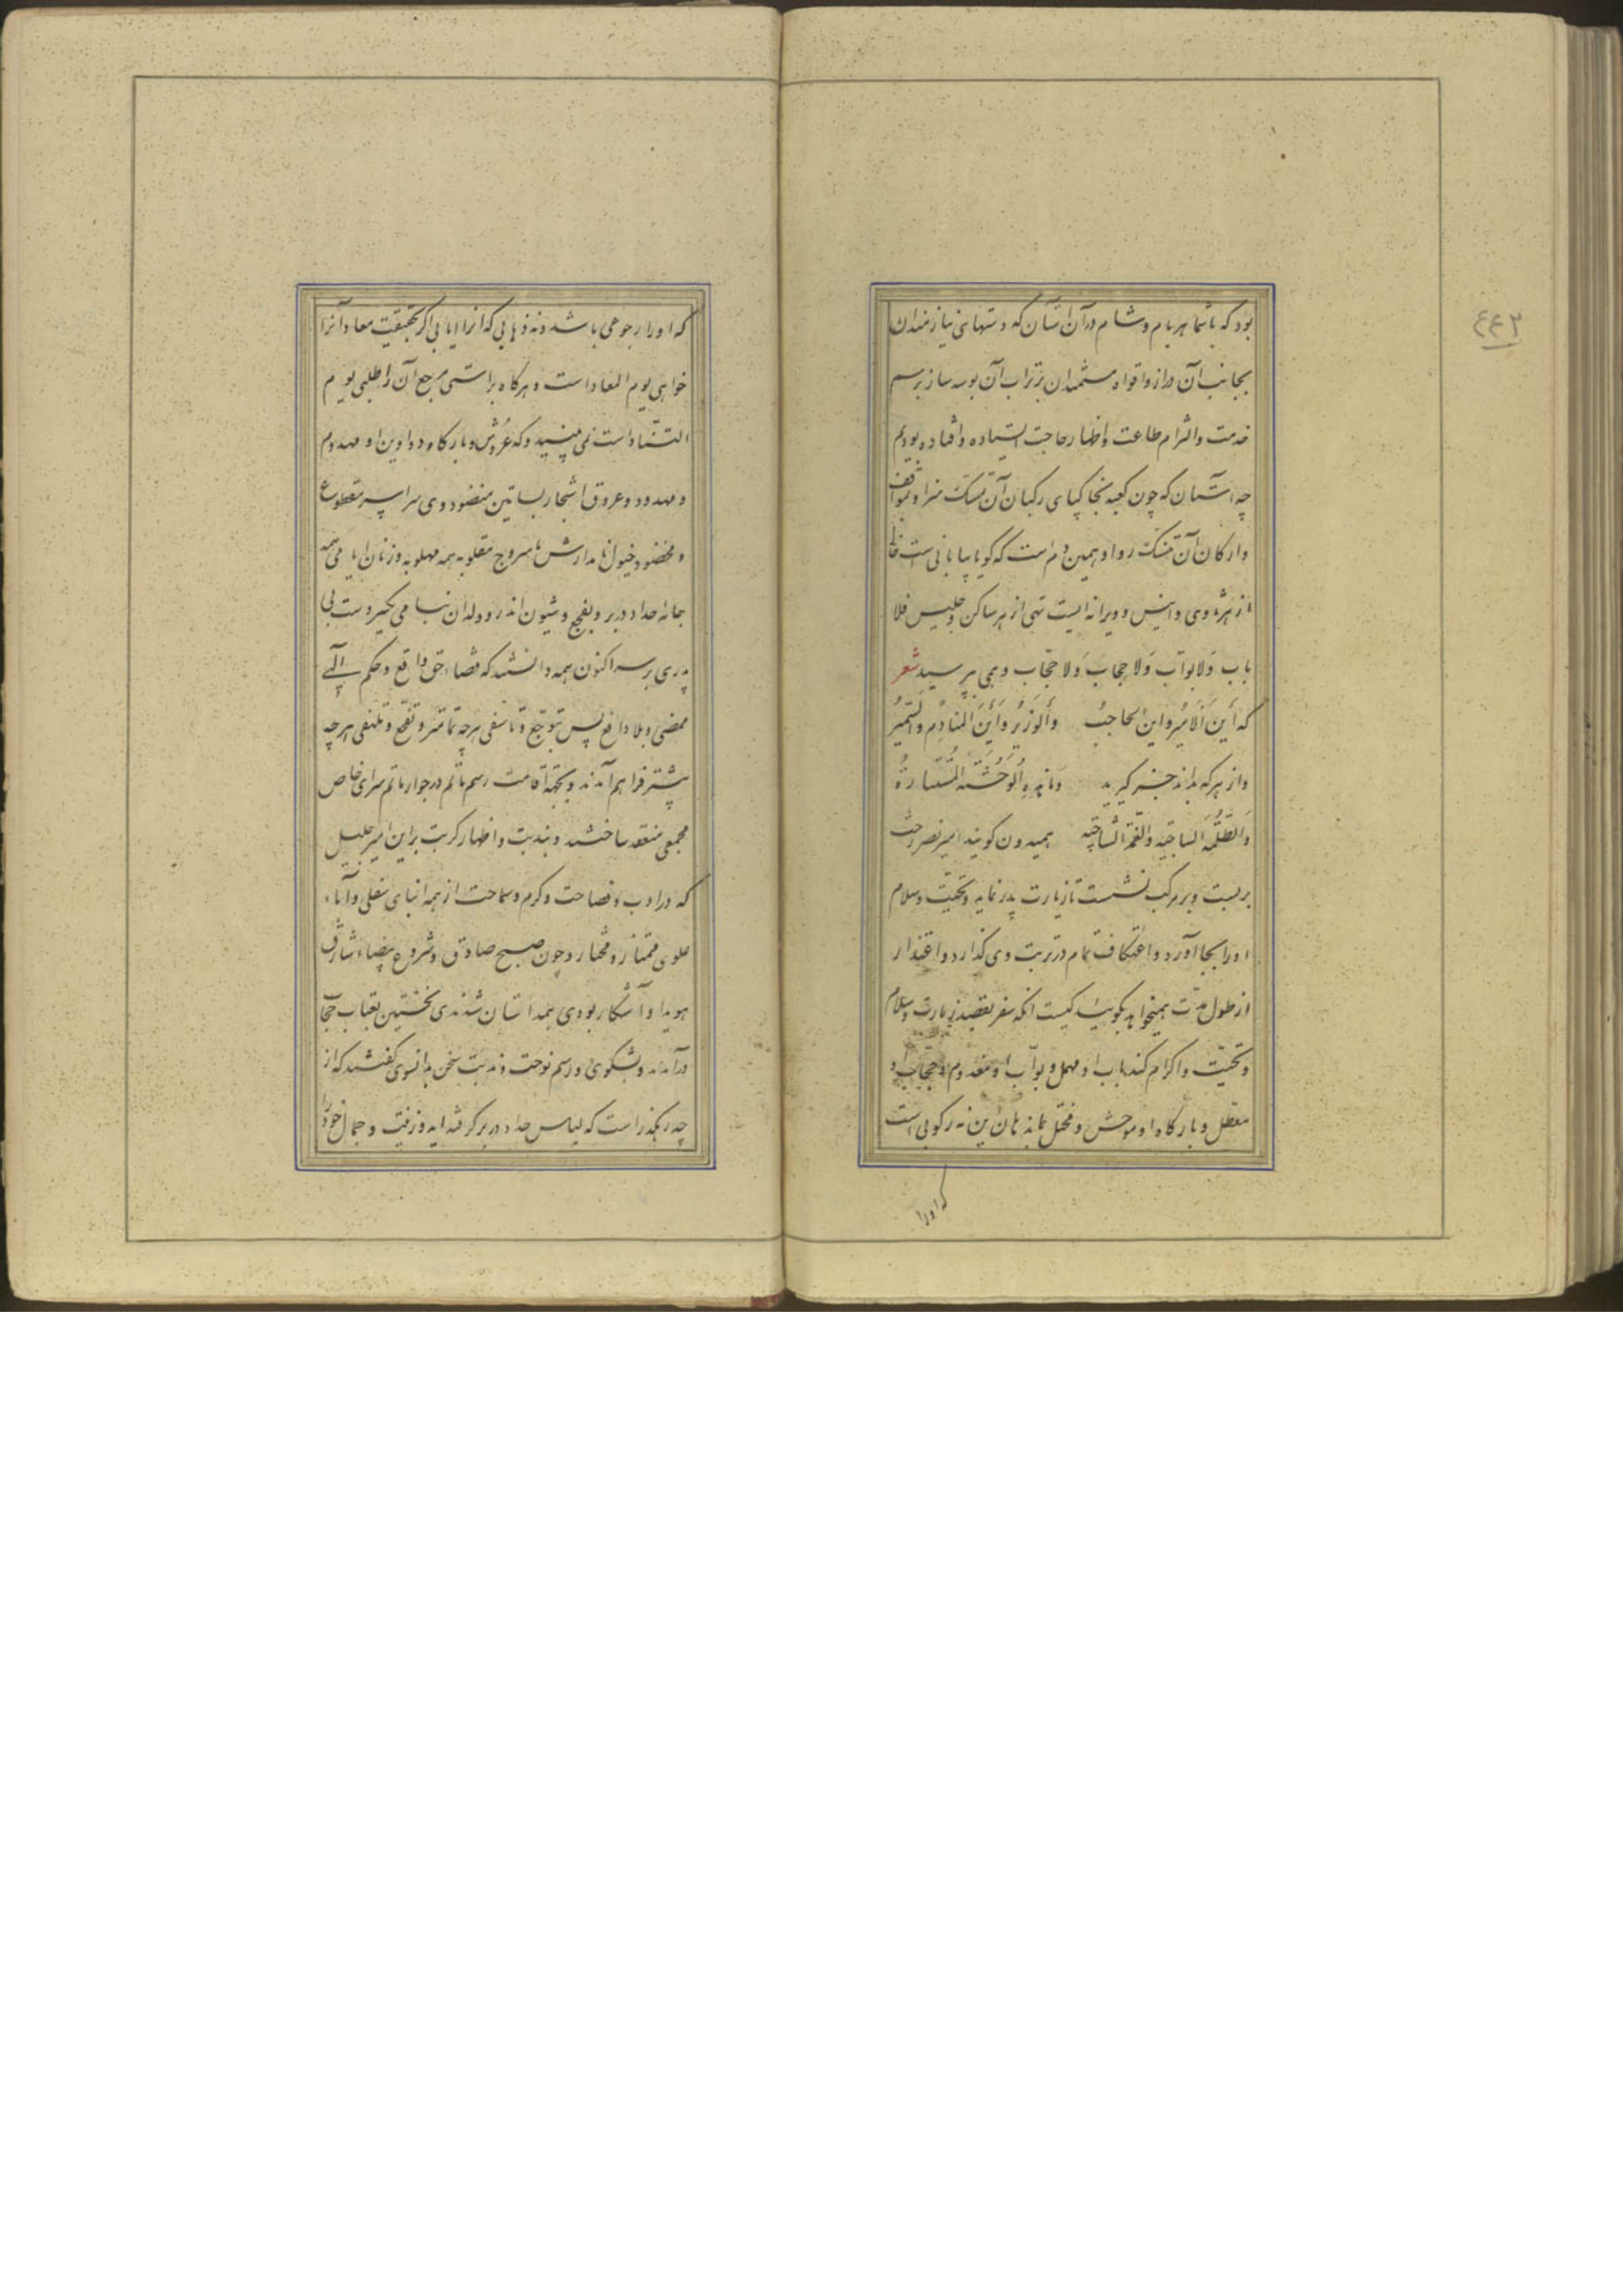 ٤٤٣
بود که با شما هر بام و شام در آن آستان که دستهای نیازمندان
بجانب آن دراز و افواه مستمندان بر تراب آن بوسه ساز برسم
خدمت و التزام طاعت و اظهار حاجت ایستاده و افتاده بودیم
چه آستان که چون کعبه ركبان آن مسکت
وارکان آن منسک روا و همین دم است که گویا بیابانی است خالی
از هژه وی و انیس و ویرانه ایست تهی از هر ساکن و جلیس فلا
باب وَلا بوّاب وَلا حِجاب وَلا حجّاب و می پرسید شعر
که أینَ الامیرُ و این الحاجبُ وَالوَزیرُ وَأینَ المنادِمُ وَالسَّمیرُ
و از هر که بداند خبر گیرید وَما هذهِ الوَحشَةُ
وَالظُّلمَة الساجیَه والغمّة همیدون گویند امیر نصر رخت
بربست و بر مرکب نشست تا زیارت پدر نماید و تحیّت و سلام
او را بجا آورد و اعتکاف تمام در تربت وی گذارد و اعتذار
از طول مدّت همیخواهد بگویید کیست آنکه سفر بقصد زیارت و سلام
و تحیّت و اکرام کند باب او مهمل و بوّاب او معدوم و حجّاب او
معطل و بارگاه او موحش و مختل ماند هان این نه رکوبی است
که او را
که او را رجوعی باشد و نه ذهابی که آنرا ایابی اگر بحقیقت معاد آنرا
خواهی یوم المعاد است و هرگاه براستی مرجع آن را طلبی یوم
التنّاد است نمی بینید که عُروش و بارگاه و دواوین او مهدوم
و مهدود و عروق اشجار بساتین منضود وی سراسر مقطوع
و مخضود خیول نامدارش با سروج مقلوبه همه مهلوبه و زنان همه
جامه حداد در بر و بفجع و شیون اندر و ولدان دست بی
پدری بر سر اکنون همه دانستند که قضاء حق واقع و حکم الهی
ممضی و بلا دافع پس بتوجّع و تأسفی هرچه تمامتر و تفجّع و تلهفی هرچه
بیشتر فراهم آمدند و بجهة اقامت رسم ماتم در جوار ماتم سرای خاص
مجمعی منعقد ساختند و بندبت و اظهار کربت بر این امیر جلیل
که در ادب و فصاحت و کرم و سماحت از همه ابنای سفلی و آباء
علوی ممتاز و مختار و چون صبح صادق و شروع بیضاء شارق
هویدا و آشکار بودی همداستان شدندی نخستین بعتاب حجّاب
درآمدند و بشکوی و رسم نوحت و ندبت سخن بدانسوی گفتند که از
چه رهگذر است که لباس حداد در بر گرفته اید و زینت و جمال خود را